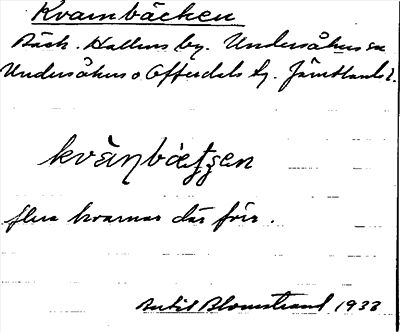 Kvarnbäcken
Bäck. Hallens by. Undersåkers sn
Undersåkers o Offerdals tg. Jämtlands l.
kvän̩bätʂen
flera kvarnar där förr.
Bertil Blomstrand 1933